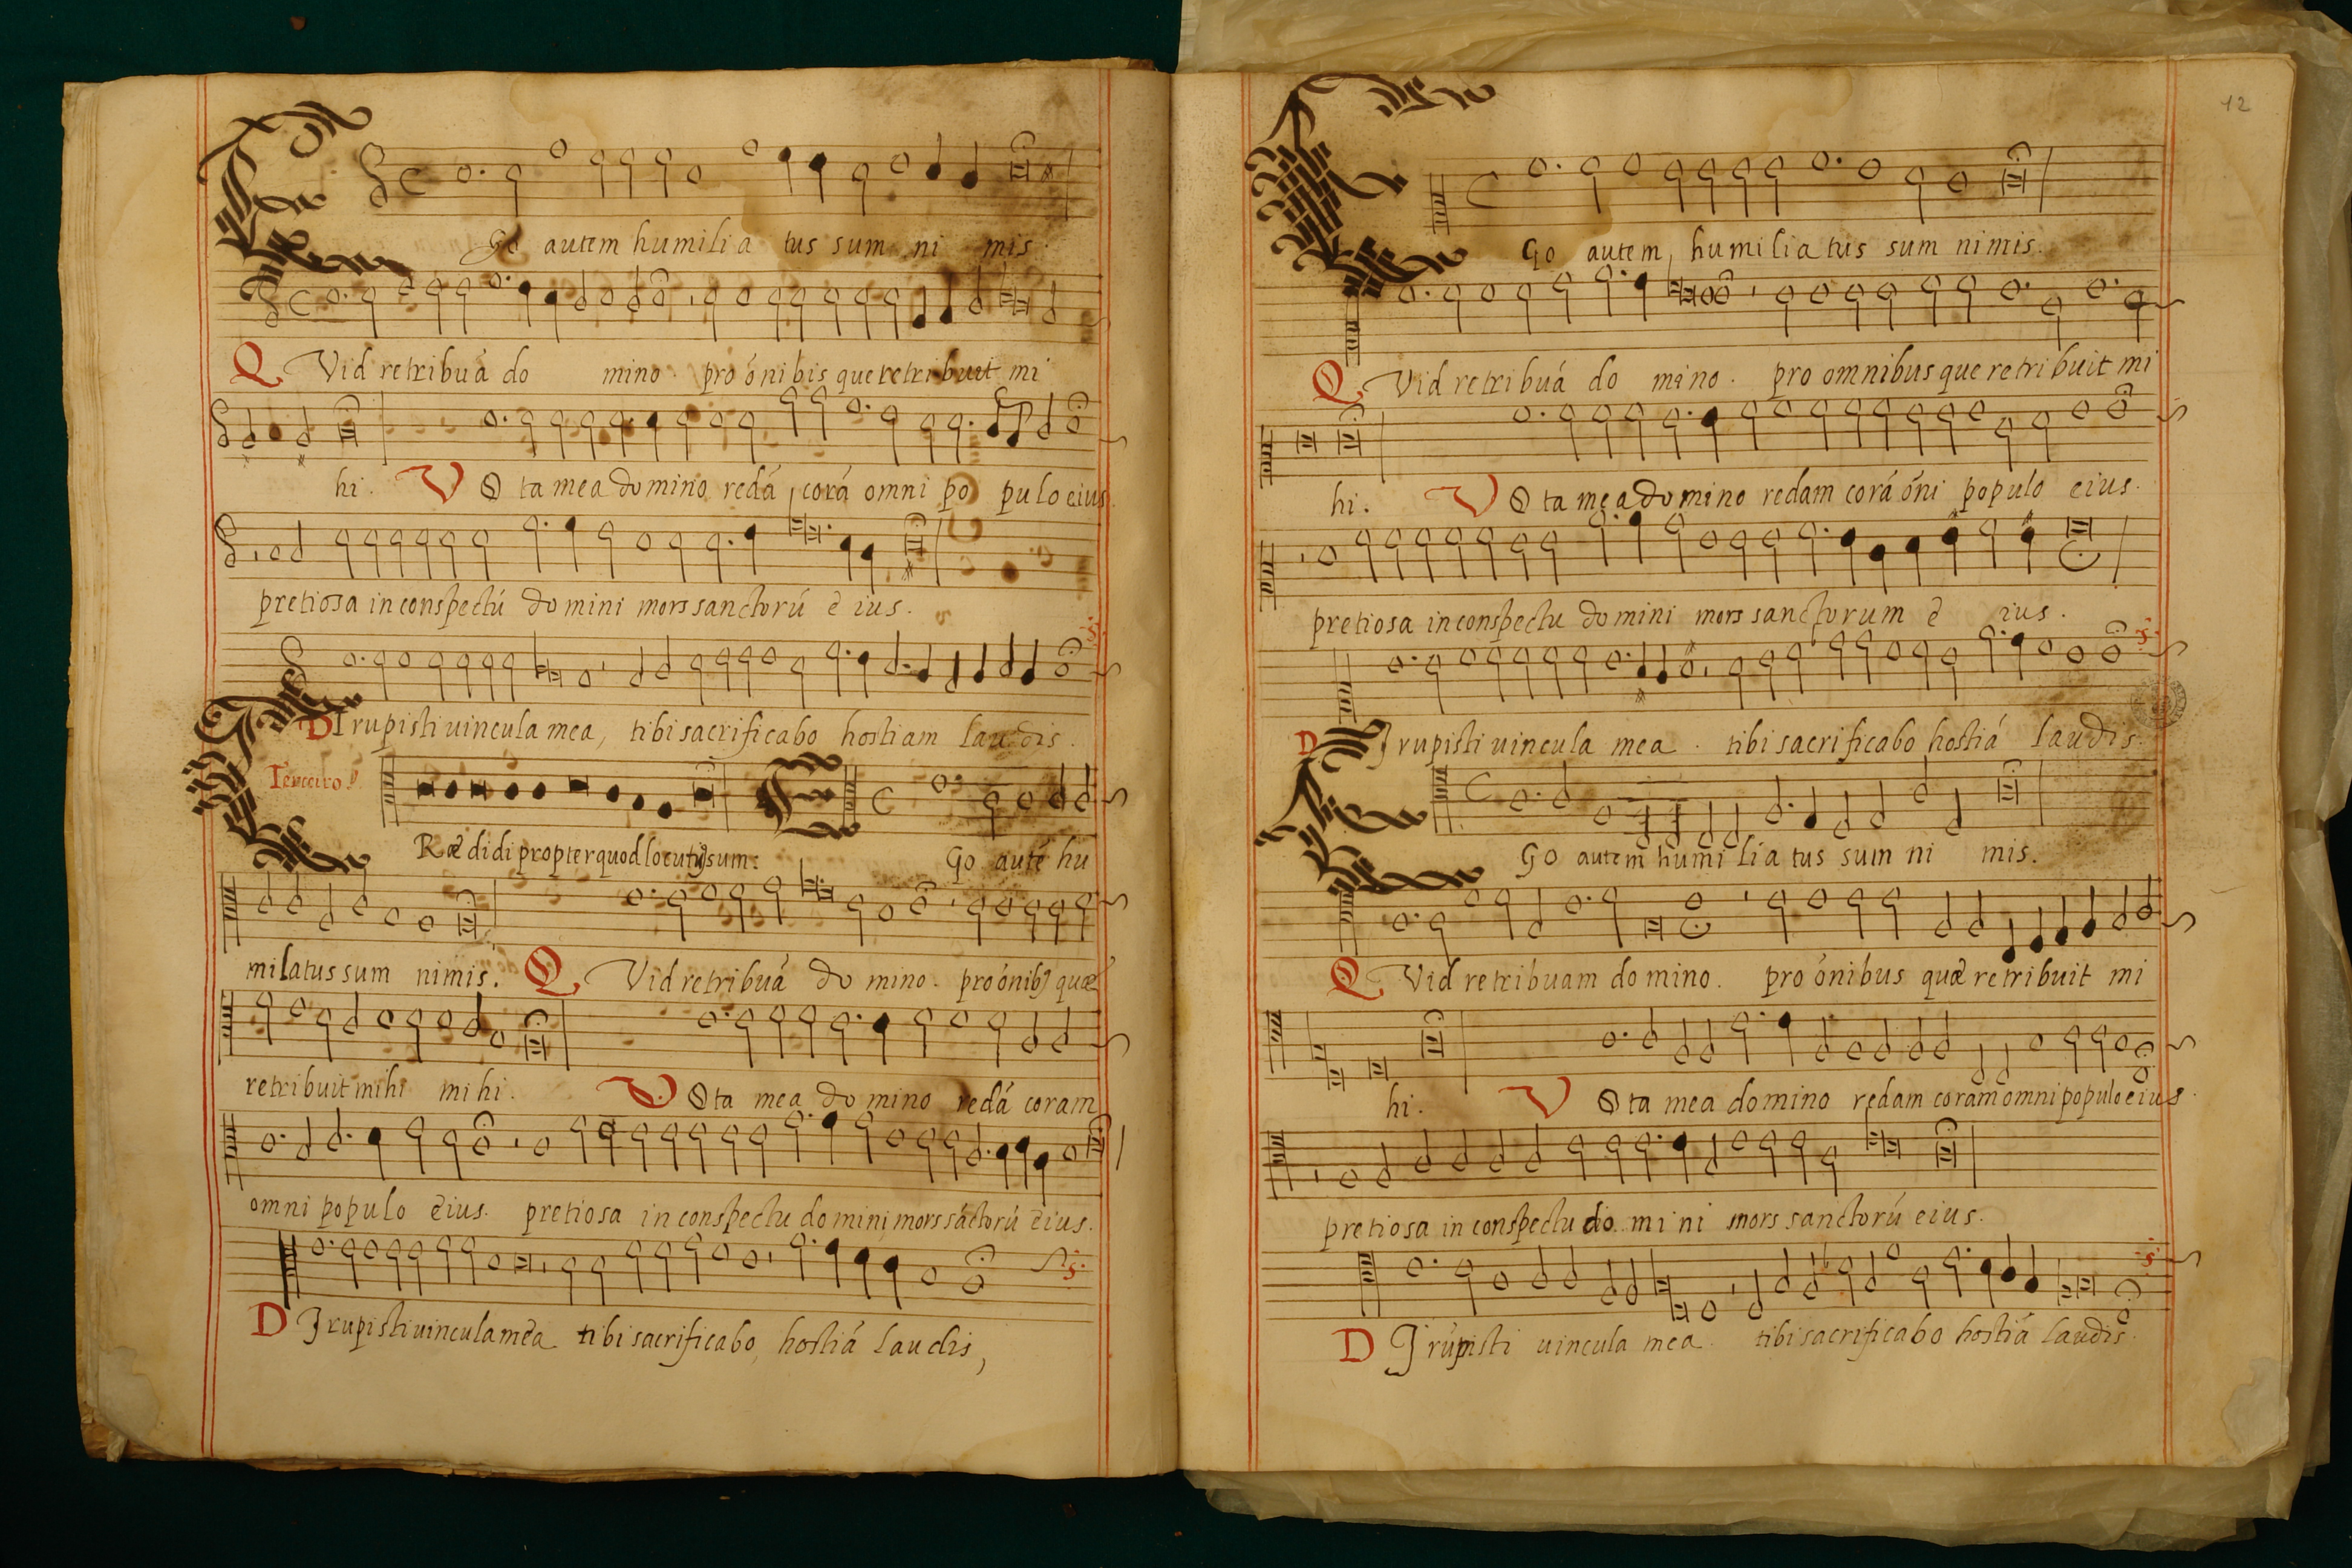 Go autem humilia tus sum ni mis.
Q Vid retribuá do mino. pro ónibis que retribuit mi
hi. V O ta mea domino redá corá omni po pulo eius.
pretiosa in conspectú domini mors sanctorú e ius.
DI rupisti uincula mea, tibi sacrificabo hostiam laudis.
Terceiro.
Ræ didi propter quod locutus sum: Go auté hu
milatus sum nimis. Q Vid retribuá do mino. pro ónibꝫ quæ
retribuit mihi mi hi. V O ta mea do mino redá coram
omni populo eius. pretiosa in conspectu domini, mors sáctorú eius.
D I rupisti uincula mea tibi sacrificabo, hostiá laudis,
12
Go autem, humilia tus sum nimis.
Q Vid retribuá do mino. pro omnibus que retribuit mi
hi. V O ta mea domino redam corá óni populo eius.
pretiosa in conspectu domini mors sanctorum e ius.
D I rupisti uincula mea. tibi sacrificabo hostiá laudis.
Go autem humi lia tus sum ni mis.
Q Vid retribuam do mino. pro ónibus quæ retribuit mi
hi. V O ta mea domino redam coram omni populo eius.
pretiosa in conspectu do mi ni mors sanctorú eius.
D I rupisti uincula mea. tibi sacrificabo hostiá laudis.